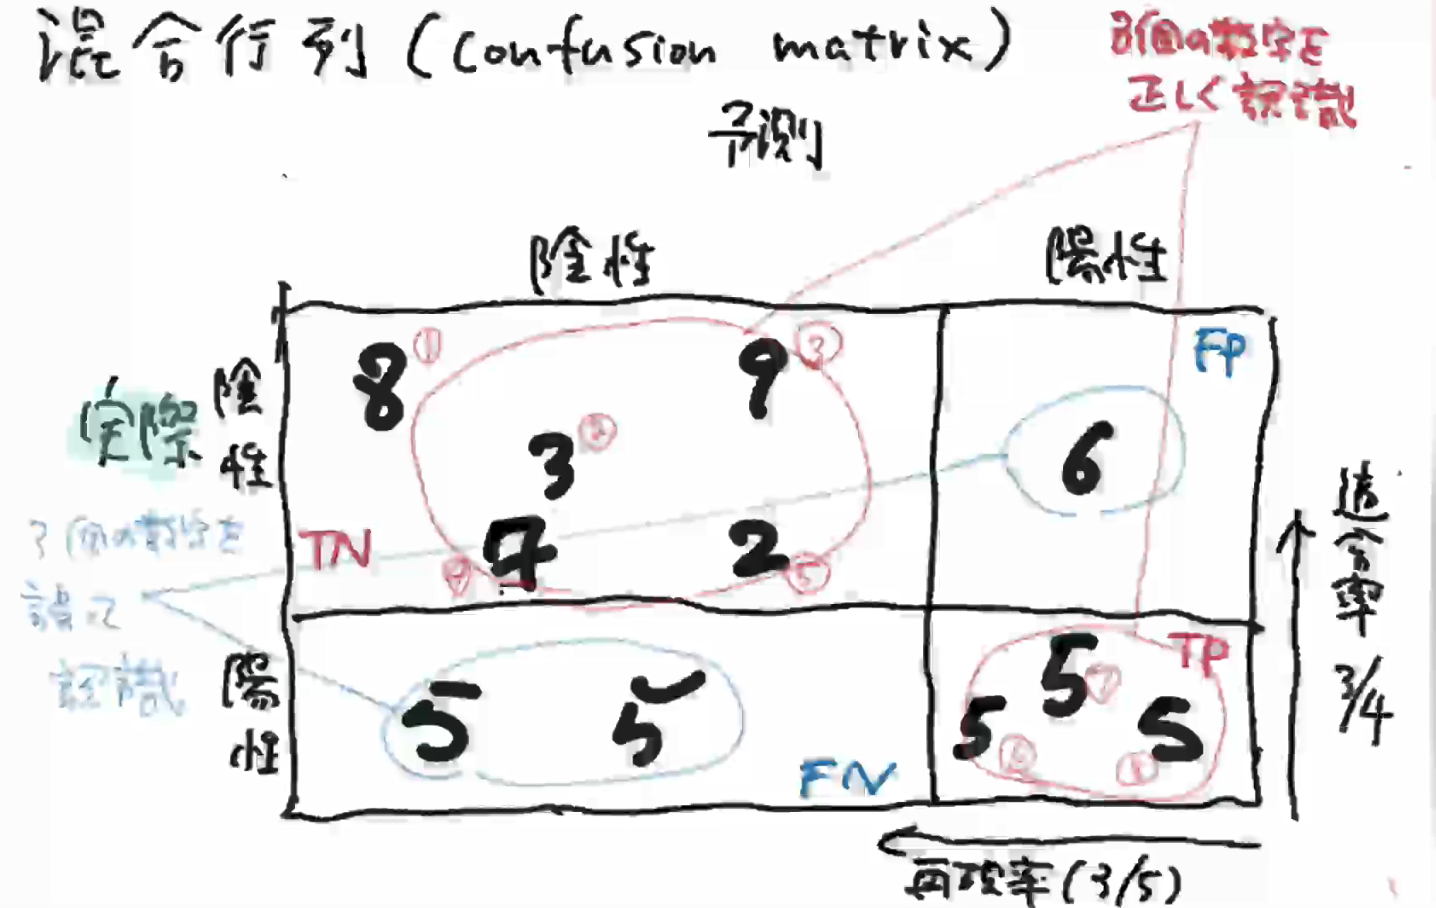 混合行列 (confusion matrix)
8個の数字を
正しく認識
予測
陰性
陽性
実際
陰性
8 ①
9 ③
FP
3 ②
6
TN
④ 7
2 ⑤
3個の数字を
誤って
認識
陽性
5
5
FN
TP
5 ⑦
5 ⑥
5 ⑧
適合率 3/4
再現率 (3/5)